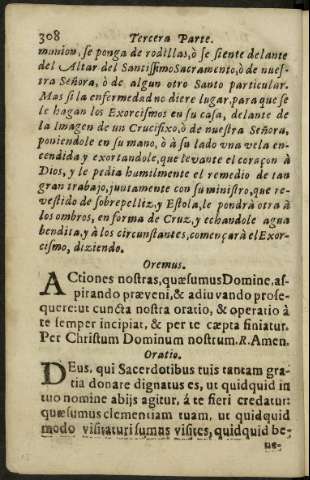 308 Tercera Parte.
munion, se ponga de rodillas, ò se siente delante
del Altar del Santissimo Sacramento, ò de nues-
tra Señora, ò de algun otro Santo particular.
Mas si la enfermedad no diere lugar, para que se
le hagan los Exorcismos en su casa, delante de
la Imagen de un Crucifixo, ò de nuestra Señora,
poniendole en su mano, ò à su lado vna vela en-
cendida y exortandole, que levante el coraçon à
Dios, y le pedia humilmente el remedio de tan
gran trabajo, juntamente con su ministro, que re-
vestido de sobrepelliz, y Estola, le pondrà otra à
los ombros, en forma de Cruz, y echandole agua
bendita, y à los circunstantes, començarà el Exor-
cismo, diziendo.
Oremus.
ACtiones nostras, quæsumus Domine, as-
pirando præveni, & adiuvando prose-
quere: ut cuncta nostra oratio, & operatio à
te semper incipiat, & per te cæpta finiatur.
Per Christum Dominum nostrum. R. Amen.
Oratio.
DEus, qui Sacerdotibus tuis tantam gra-
tia donare dignatus es, ut quidquid in
tuo nomine abijs agitur, á te fieri credatur:
quæsumus clementiam tuam, ut quidquid
modo visitaturi sumus visites, quidquid be-
ne-